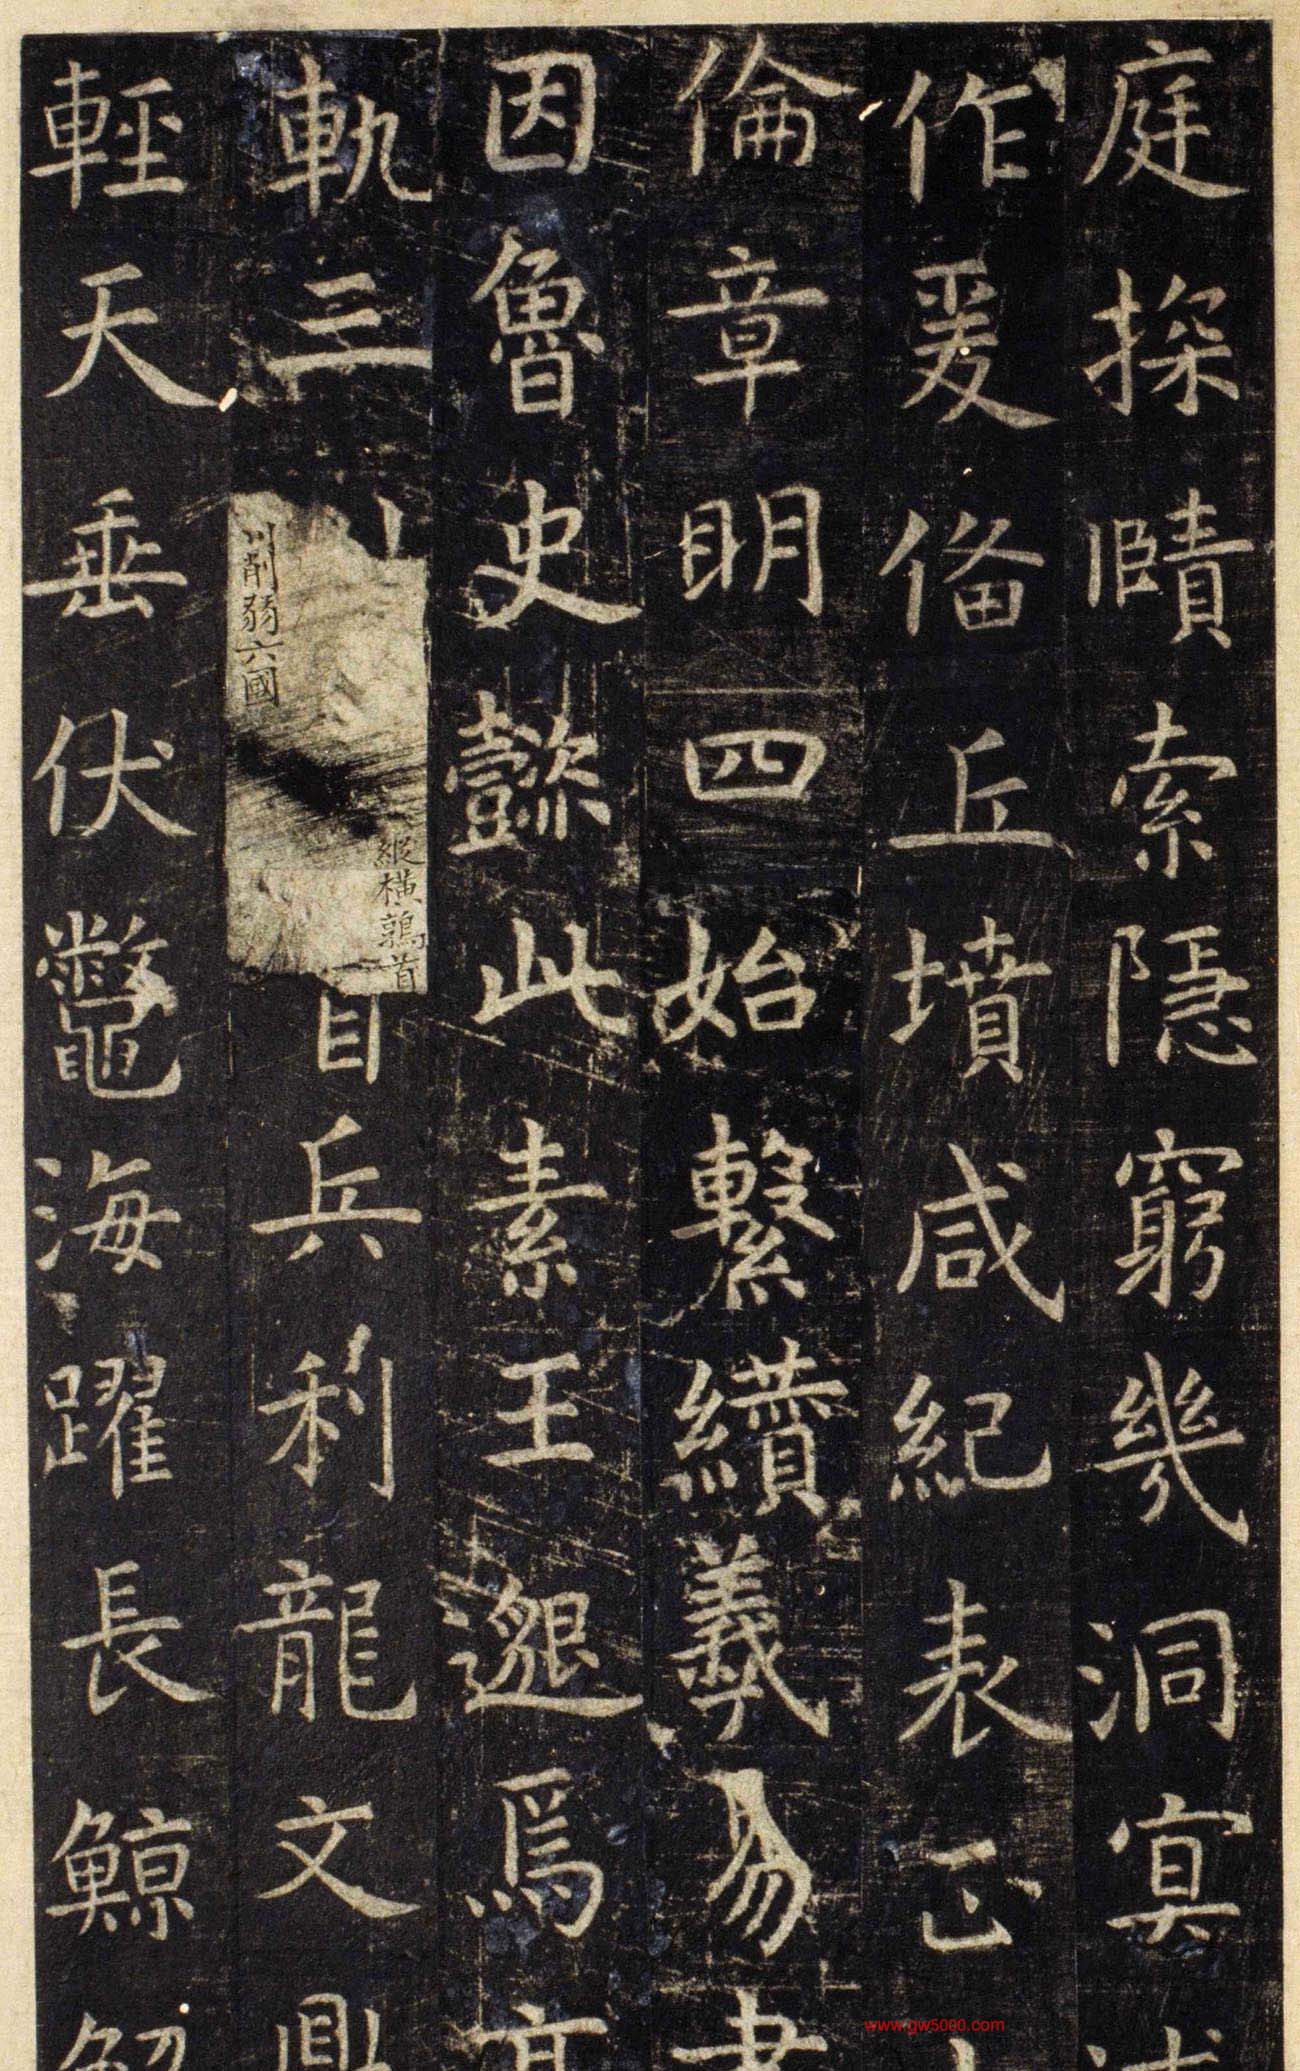 庭探賾索隱窮幾洞寘
作爰俻丘墳咸紀表正
倫章明四始繫纘羲易
因魯史懿此素王邈焉
軌三川削弱六國縱橫鶉首兵利龍文鼎
輕天垂伏鼈海躍長鯨解
www.gw5000.com